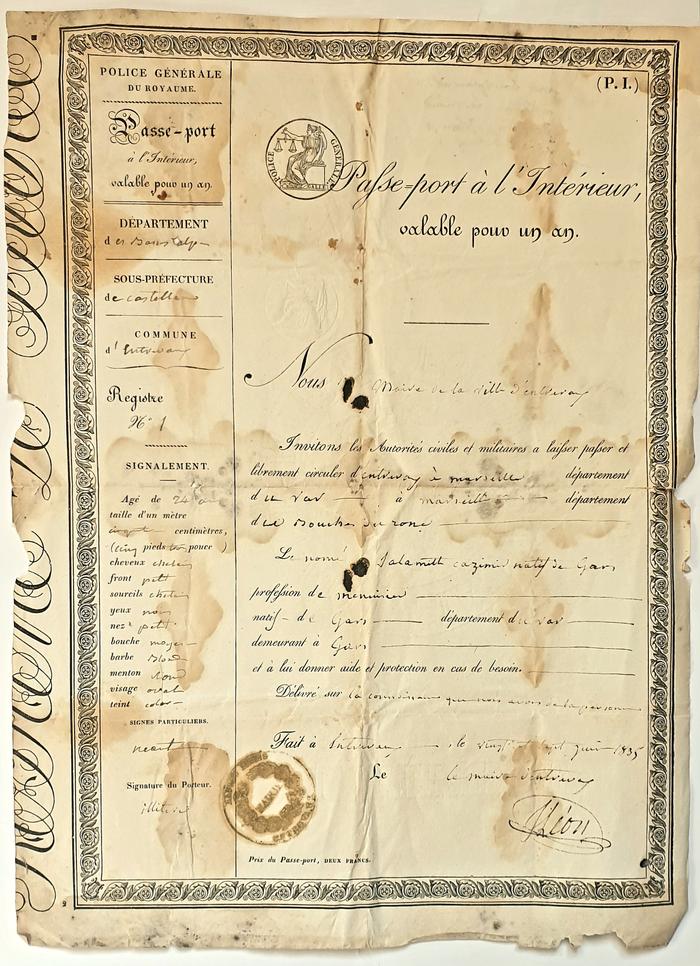 POLICE GÉNÉRALE
DU ROYAUME.
Passe-port
à l'Intérieur,
valable pour un an.
DÉPARTEMENT
des
SOUS-PRÉFECTURE
de castellan
COMMUNE
d'Entrevaux
Registre
N° 1
SIGNALEMENT.
Agé de 24
taille d'un mètre
centimètres,
(cinq pieds pouce )
cheveux
front petit
sourcils
yeux noirs
nez petit
bouche moyen
barbe
menton rond
visage oval
teint coloré
SIGNES PARTICULIERS.
neant
Signature du Porteur.
illitéré
(P. I.)
POLICE GÉNÉRALE
Passe-port à l'Intérieur,
valable pour un an.
Nous Maire de la ville d'entrevaux
Invitons les Autorités civiles et militaires a laisser passer et
librement circuler d'entrevaux à marseille département
du var à marseille département
des Bouches du rone
Le nommé cazimir natif de Gars
profession de menuisier
natif de Gars département du var
demeurant à Gars
et à lui donner aide et protection en cas de besoin.
Délivré sur la que nous avons de la personne
Fait à Entrevaux , le vingt sept juin 1835
Le le maire d'entrevaux
Léon
Prix du Passe-port, DEUX FRANCS.